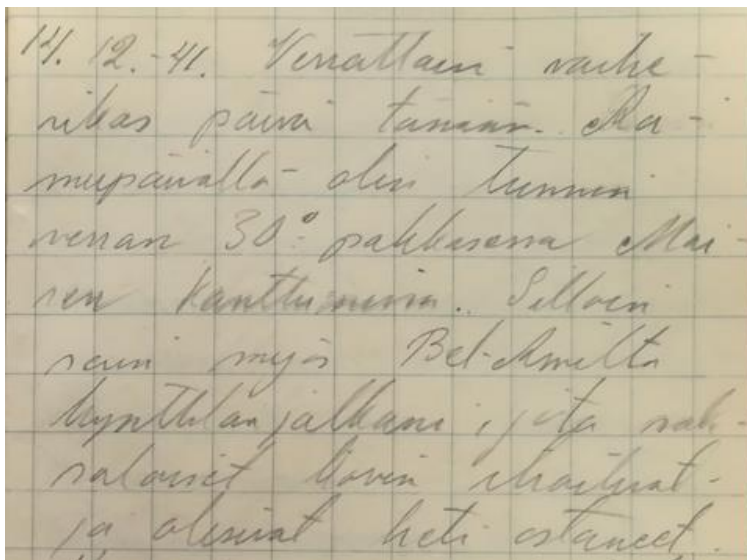 14. 12.-41. Verrattain vaihe-
rikas päivä tänään. Aa-
mupäivällä olin tunnin
verran 30° pakkasessa Mai-
ren
Silloin
sain myös
jalkaani, joita sak-
salaiset kovin ihailivat
ja olisivat heti ostaneet.